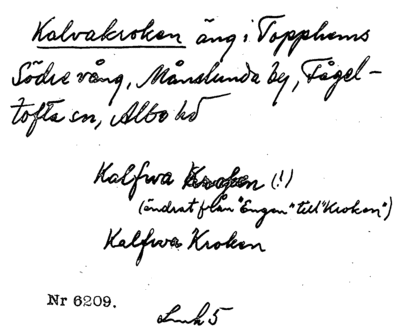 Kalvakroken äng i Topphems
Södre vång, Månslunda by, Fågel-
tofta sn, Albo hd
Kalfwa Kroken (!)
(ändrat från "Engen" till "Kroken")
Kalfwa Kroken
Nr 6209.
Lmk 5